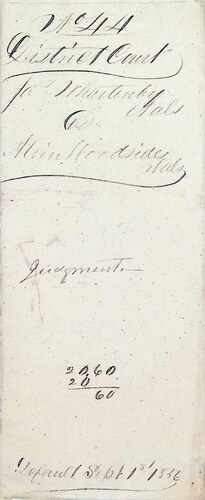 No 44
District Court
Jas Whartenby
et als
vs
Alvin Woodside
et als
Judgment
2060
20
60
Default Sept 1st 1856